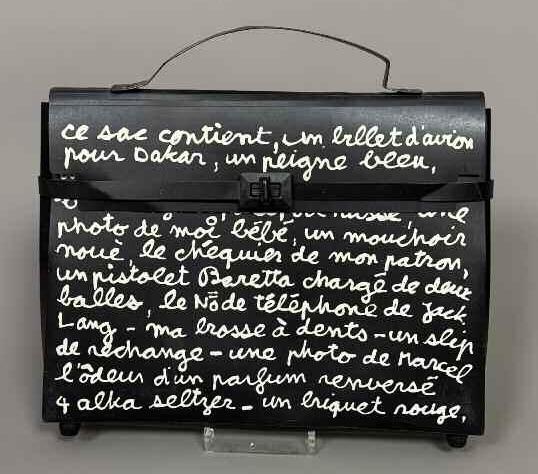 ce sac contient, un billet d'avion
pour Dakar, un peigne bleu,
une
photo de moi bébé, un mouchoir
noué, le chéquier de mon patron,
un pistolet Baretta chargé de deux
balles, le No de téléphone de Jack
Lang - ma brosse à dents - un slip
de rechange - une photo de Marcel
l'ôdeur d'un parfum renversé
4 alka seltzer - un briquet rouge,